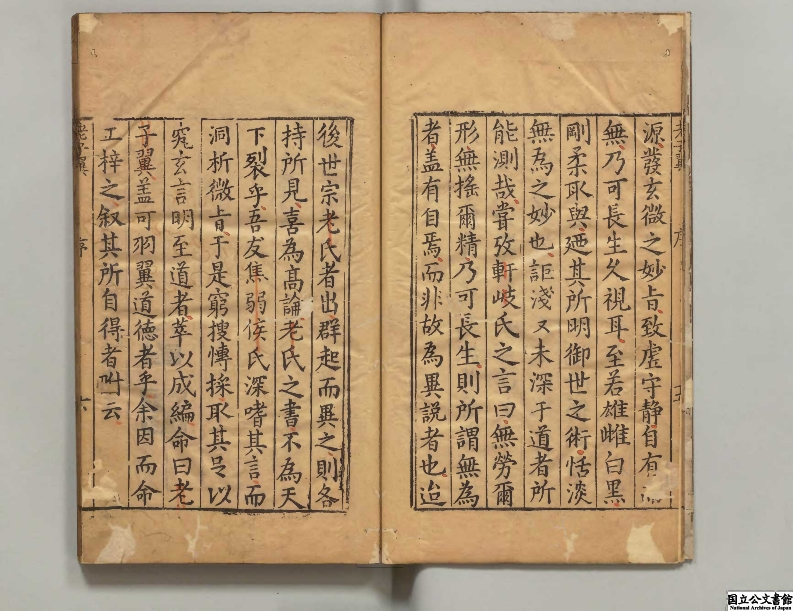 源發玄微之妙旨致虛守静自有
無乃可長生久視耳至若雄雌白黑
剛柔取與廼其所明御世之術恬淡
無為之妙也詎淺又未深于道者所
能測哉甞攷軒岐氏之言曰無勞爾
形無搖爾精乃可長生則所謂無為
者盖有自焉而非故為異説者也迨
後世宗老氏者出群起而異之則各
持所見喜為高論老氏之書不為天
下裂乎吾友焦弱侯氏深嗜其言而
洞析微旨于是窮搜博採取其足以
窺玄言明至道者萃以成編命曰老
子翼盖可羽翼道德者乎余因而命
工梓之叙其所自得者如此云
老子翼
序
六
国立公文書館
National Archives of Japan